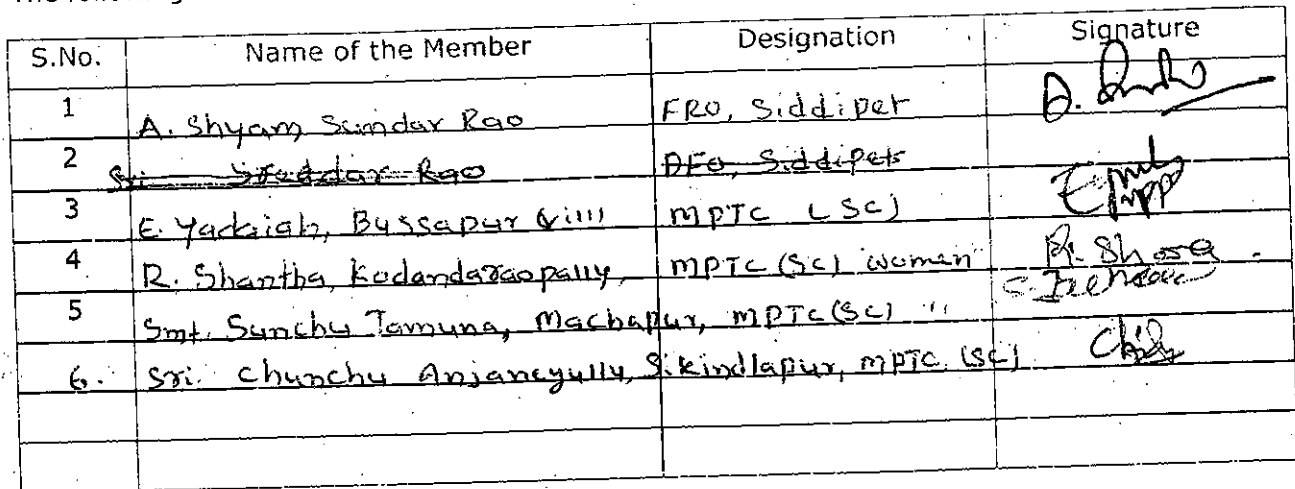 S.No. Name of the Member Designation Signature
1 A. Shyam Sundar Rao FRO, Siddipet
2 Sri Sreedar Rao DFO, Siddipet
3 E. Yadaiah, Bussapur (vill) MPTC (SC)
4 R. Shantha, Kodandaraopally, MPTC (SC) women R. Sh
5 Smt. Sunchu Jamuna, Machapur, MPTC (SC) "
6. Sri. Chunchu Anjaneyullu, Sikindlapur, MPTC (SC)